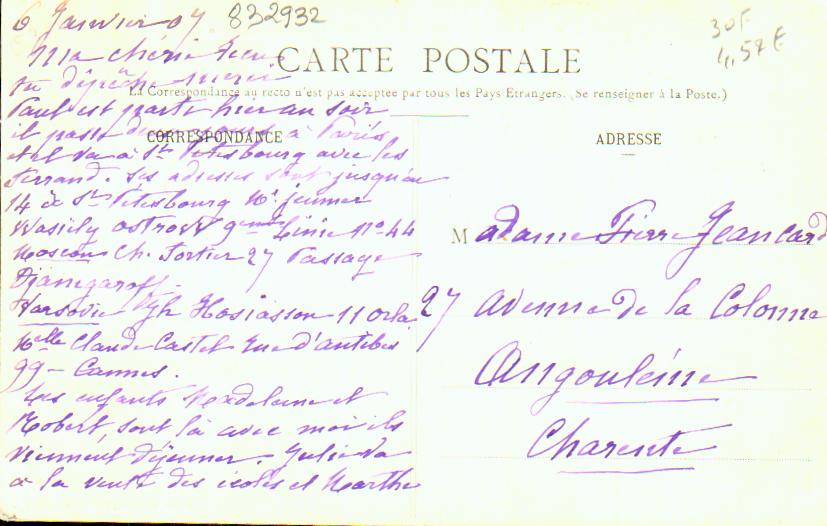 6 Janvier 07 832932
30F
4,57 €
Ma chérie
ta dépêche
CARTE POSTALE
La Correspondance au recto n'est pas acceptée par tous les Pays Etrangers. (Se renseigner à la Poste.)
Paul est parti hier au soir
il passe à Paris
CORRESPONDANCE
et il va à St Petesbourg avec les
Ferrand. Ses adresses sont jusqu'au
14 à St Pétesbourg Mr jeunner
Wasiliy ostrow 9eme Linie no 44
Moscou Ch. Tortier 27 Passage
Djamgaroff
Varsovie Hosiasson 11 orla
Melle Claude Castel rue d'antibes
99 - Cannes.
Les enfants Madeleine et
Robert, sont là avec moi ils
viennent déjeuner. Julie va
a la vente des écoles et Marthe
ADRESSE
Madame Pierre Jeancard
27 avenue de la Colonne
Angoulême
Charente